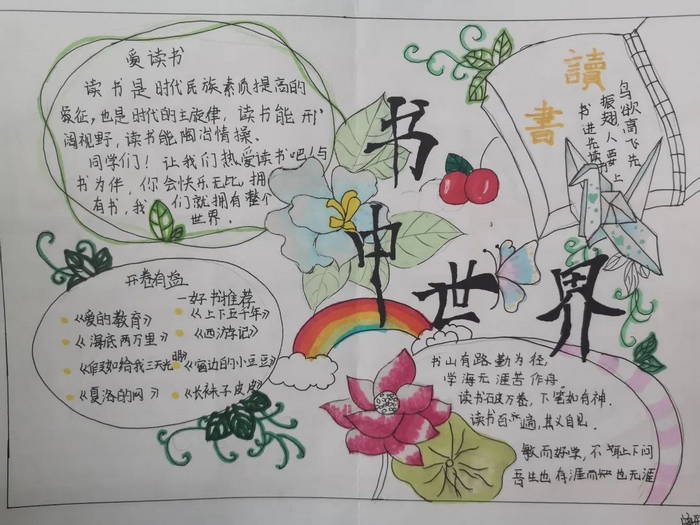 爱读书
读书是时代民族素质提高的
象征,也是时代的主旋律,读书能开
阔视野,读书能陶冶情操.
同学们!让我们热爱读书吧!与
书为伴,你会快乐无比,拥
有书,我们就拥有整个
世界.
书中世界
讀書
鸟欲高飞先
振翅人要上
进先读书
开卷有益
—好书推荐
《爱的教育》
《上下五千年》
《海底两万里》
《西游记》
《假如给我三天光明》
《窗边的小豆豆》
《夏洛的网》
《长袜子皮皮》
书山有路勤为径,
学海无涯苦作舟.
读书破万卷,下笔如有神.
读书百遍,其义自见.
敏而好学,不耻下问
吾生也有涯而知也无涯